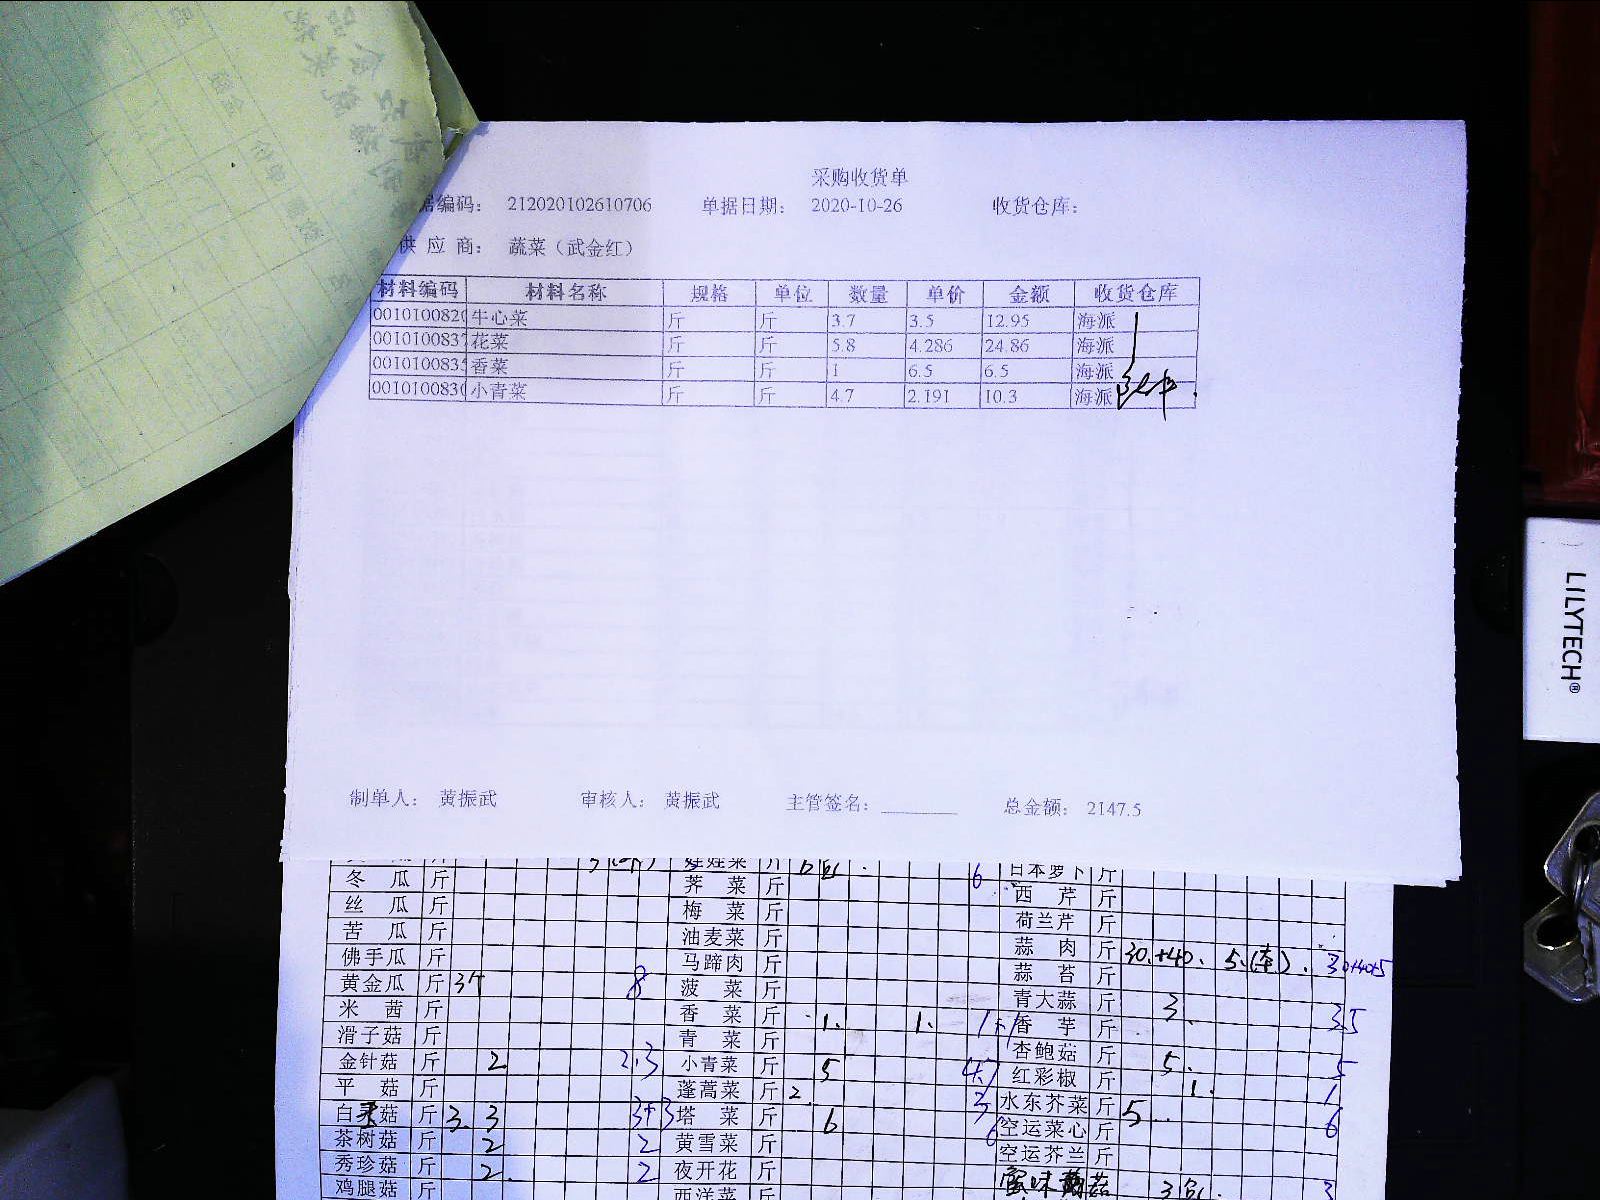 采购收货单
据编码： 212020102610706 单据日期： 2020-10-26 收货仓库：
供 应 商： 蔬菜（武金红）
材料编码 材料名称 规格 单位 数量 单价 金额 收货仓库
001010082 牛心菜 斤 斤 3.7 3.5 12.95 海派
001010083 花菜 斤 斤 5.8 4.286 24.86 海派
001010083 香菜 斤 斤 1 6.5 6.5 海派
001010083 小青菜 斤 斤 4.7 2.191 10.3 海派
制单人： 黄振武 审核人： 黄振武 主管签名： 总金额： 2147.5
斤 娃娃菜 斤 6 日本萝卜 斤
冬 瓜 斤 荠 菜 斤 西 芹 斤
丝 瓜 斤 梅 菜 斤 荷兰芹 斤
苦 瓜 斤 油麦菜 斤 蒜 肉 斤 30.+40. 5. 30+40+5
佛手瓜 斤 马蹄肉 斤 蒜 苔 斤
黄金瓜 斤 3个 8 菠 菜 斤 青大蒜 斤 3. 3.5
米 茜 斤 香 菜 斤 1. 1. 1+1 香 芋 斤
滑子菇 斤 青 菜 斤 杏鲍菇 斤 5. 5
金针菇 斤 2 2.3 小青菜 斤 5 4.7 红彩椒 斤 1. 1
平 菇 斤 蓬蒿菜 斤 2. 2 水东芥菜 斤 5 6
白灵菇 斤 3. 3 3+3 塔 菜 斤 6 6 空运菜心 斤
茶树菇 斤 2 2 黄雪菜 斤 空运芥兰 斤
秀珍菇 斤 2. 2 夜开花 斤 3 3
鸡腿菇 斤 西洋菜 斤
LILYTECH®